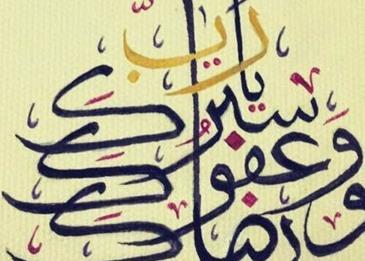 يا رب
سترك
وعفوك
ورضاك